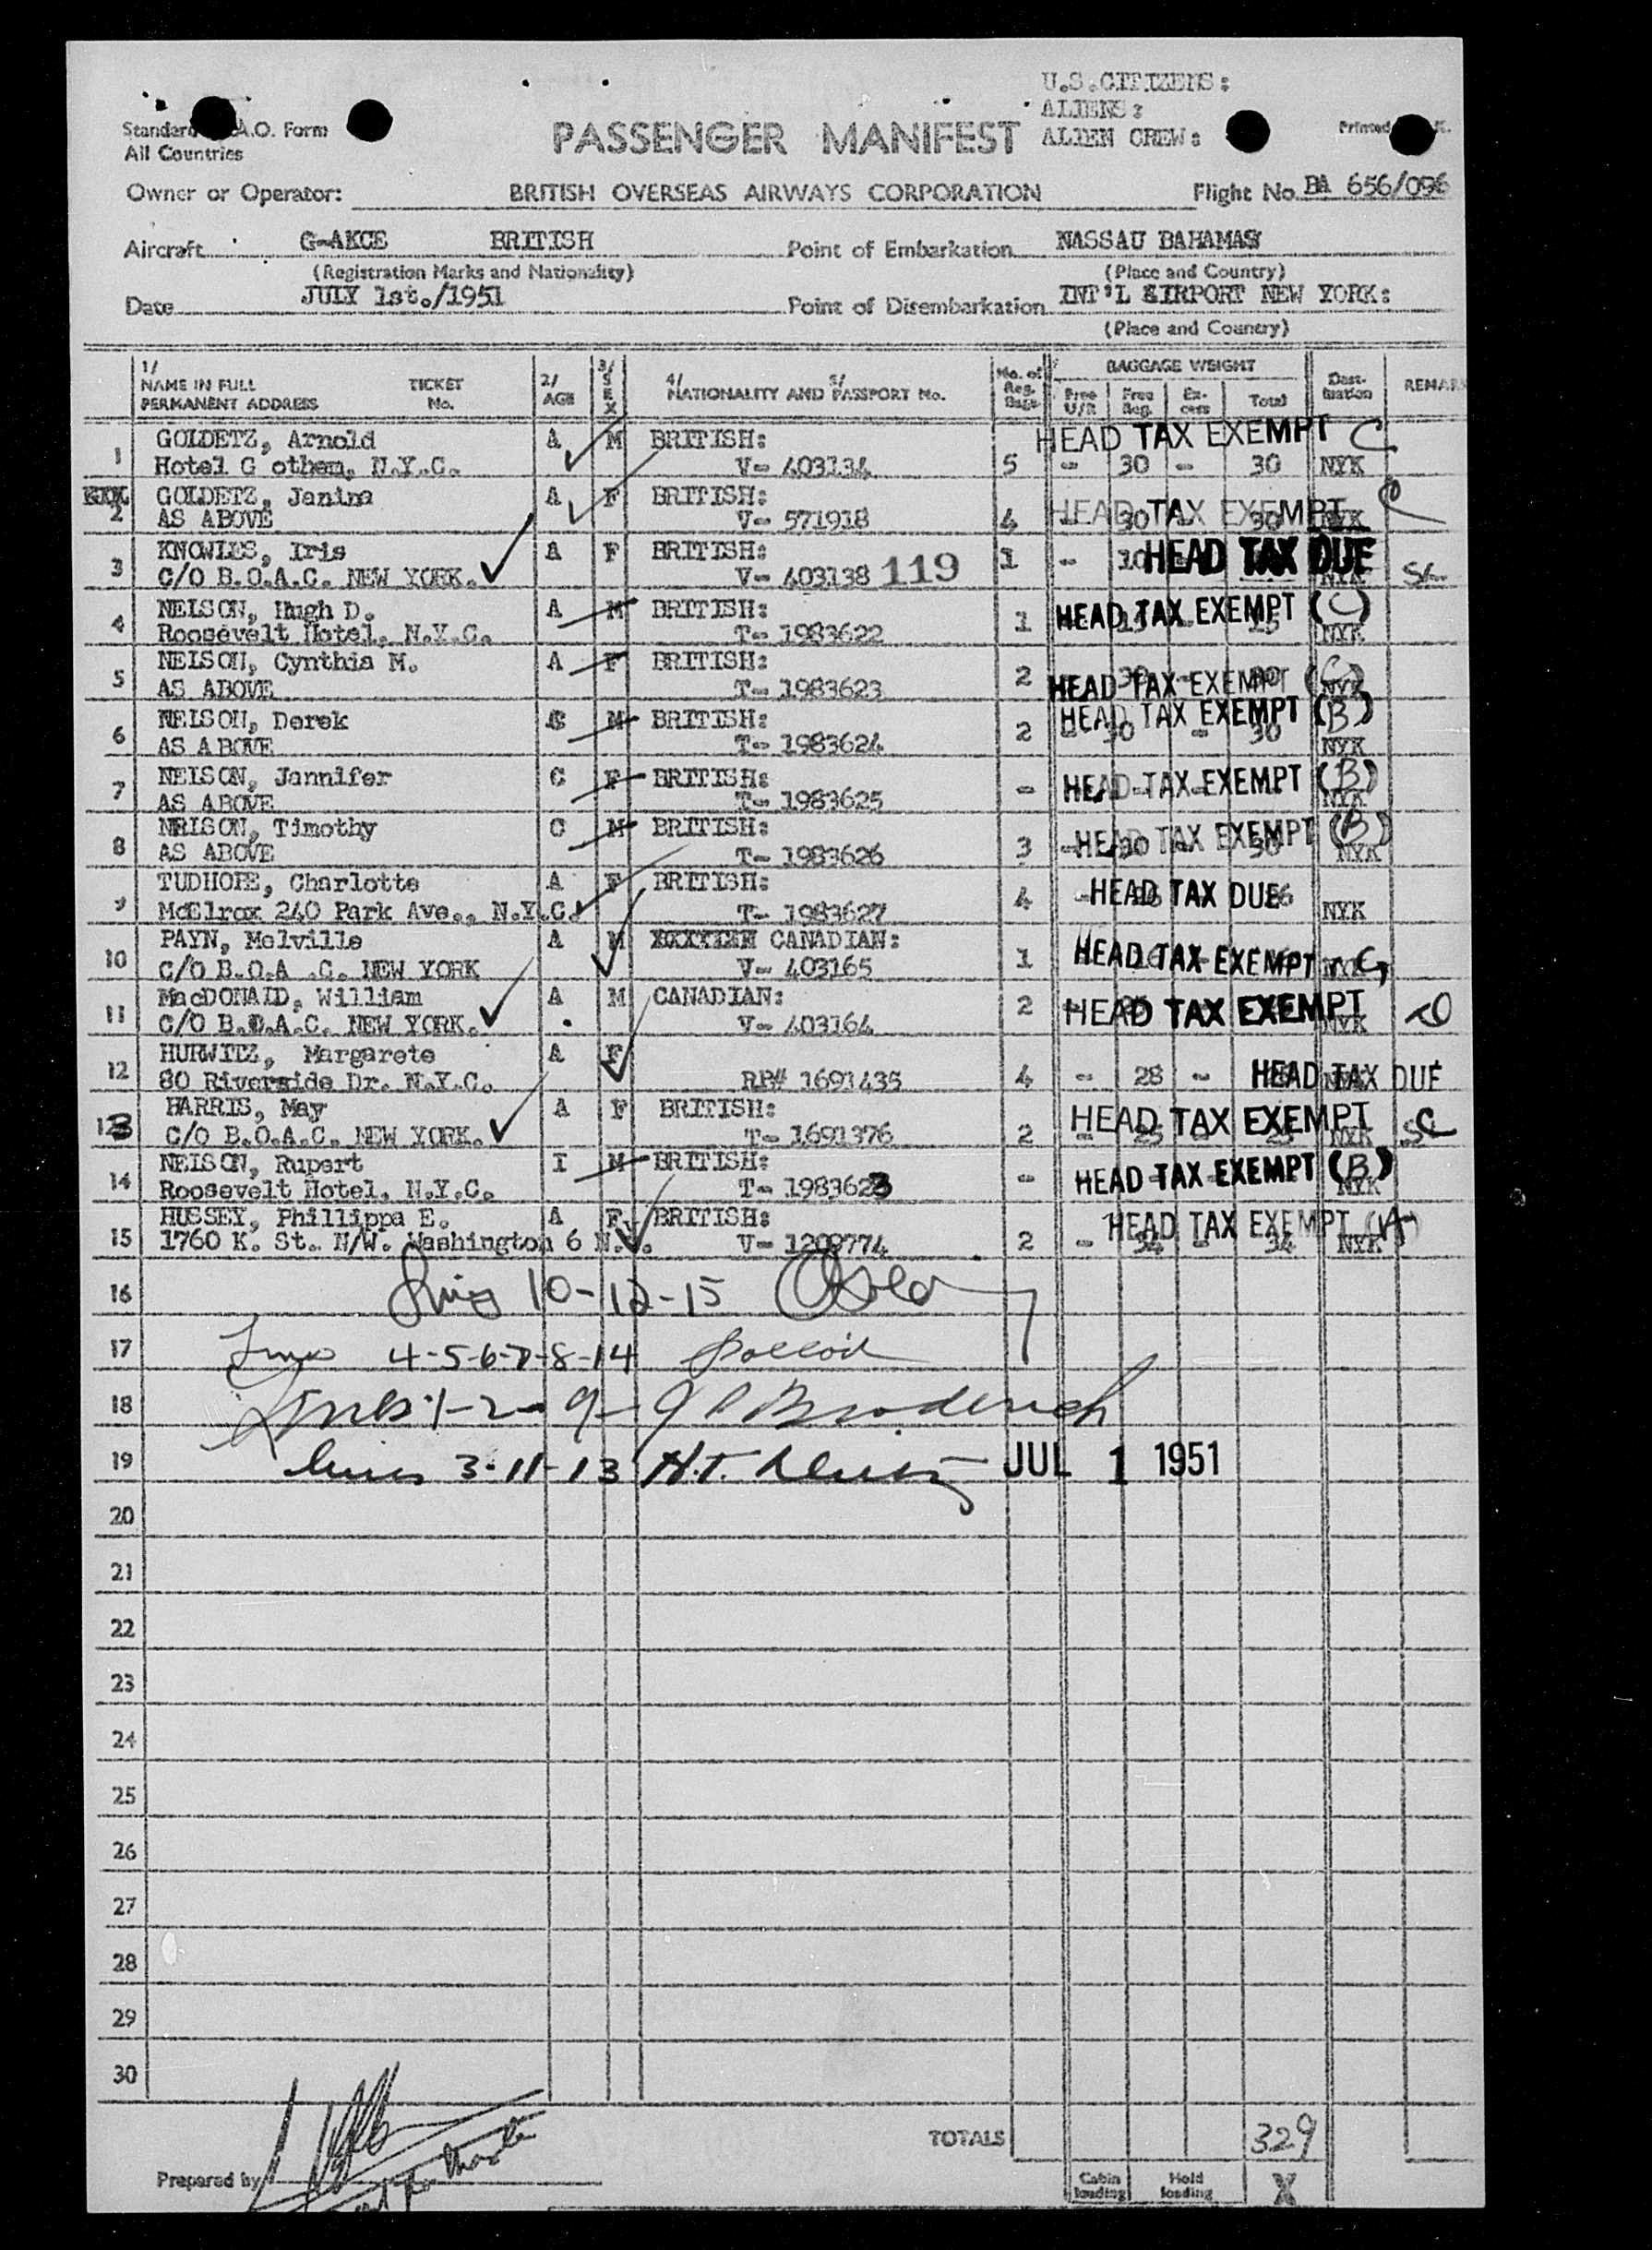 U.S.CITIZENS:
ALIENS:
ALIEN CREW:
Standard A.O. Form
All Countries
PASSENGER MANIFEST
Printed
Owner or Operator: BRITISH OVERSEAS AIRWAYS CORPORATION Flight No. BA 656/096
Aircraft G-AKCE BRITISH Point of Embarkation NASSAU BAHAMAS
(Registration Marks and Nationality) (Place and Country)
Date JULY 1st./1951 Point of Disembarkation INT'L AIRPORT NEW YORK:
(Place and Country)
1/ NAME IN FULL TICKET 2/ 3/ 4/ 5/ No. of BAGGAGE WEIGHT Dest- REMAR
PERMANENT ADDRESS No. AGE SEX NATIONALITY AND PASSPORT No. Reg. Bags Free U/R Free Reg. Ex-cess Total ination
1 GOLDETZ, Arnold A M BRITISH: HEAD TAX EXEMPT C
Hotel G othem, N.Y.C. V- 403134 5 - 30 - 30 NYK
2 GOLDETZ, Janina A F BRITISH: HEAD TAX EXEMPT
AS ABOVE V- 571918 4 - 30 - 30 NYK
3 KNOWLES, Iris A F BRITISH: HEAD TAX DUE
C/O B.O.A.C. NEW YORK. V- 403138 119 1 - 10 NYK
4 NELSON, Hugh D. A M BRITISH: HEAD TAX EXEMPT (C)
Roosevelt Hotel, N.Y.C. T- 1983622 1 NYK
5 NELSON, Cynthia M. A F BRITISH:
AS ABOVE T- 1983623 2 HEAD TAX EXEMPT (C) NYK
6 NELSON, Derek C M BRITISH: HEAD TAX EXEMPT (B)
AS ABOVE T- 1983624 2 - 30 - 30 NYK
7 NELSON, Jannifer C F BRITISH: HEAD TAX EXEMPT (B)
AS ABOVE T- 1983625 - NYK
8 NELSON, Timothy C M BRITISH: HEAD TAX EXEMPT (B)
AS ABOVE T- 1983626 3 - 30 - 30 NYK
9 TUDHOPE, Charlotte A F BRITISH: HEAD TAX DUE
McElrox 240 Park Ave., N.Y.C. T- 1983627 4 NYK
10 PAYN, Melville A M CANADIAN: HEAD TAX EXEMPT
C/O B.O.A .C. NEW YORK V- 403165 1 NYK
11 MacDONALD, William A M CANADIAN: HEAD TAX EXEMPT
C/O B.O.A.C. NEW YORK. V- 403164 2 NYK
12 HURWITZ, Margarete A F
80 Riverside Dr. N.Y.C. RP# 1691435 4 - 28 - HEAD TAX DUE
13 HARRIS, May A F BRITISH: HEAD TAX EXEMPT
C/O B.O.A.C. NEW YORK. T- 1691376 2 - 25 - 25 NYK SC
14 NELSON, Rupert I M BRITISH: HEAD TAX EXEMPT (B)
Roosevelt Hotel, N.Y.C. T- 1983623 - NYK
15 HUSSEY, Phillippa E. A F BRITISH: HEAD TAX EXEMPT (A)
1760 K. St. N/W. Washington 6 V- 1209774 2 - 34 - 34 NYK
16 10-12-15
17 4-5-6-7-8-14
18 1-2-9- J P Broderick
19 3-11-13 H.T. JUL 1 1951
20
21
22
23
24
25
26
27
28
29
30
TOTALS 329
Prepared by Cabin loading Hold loading X